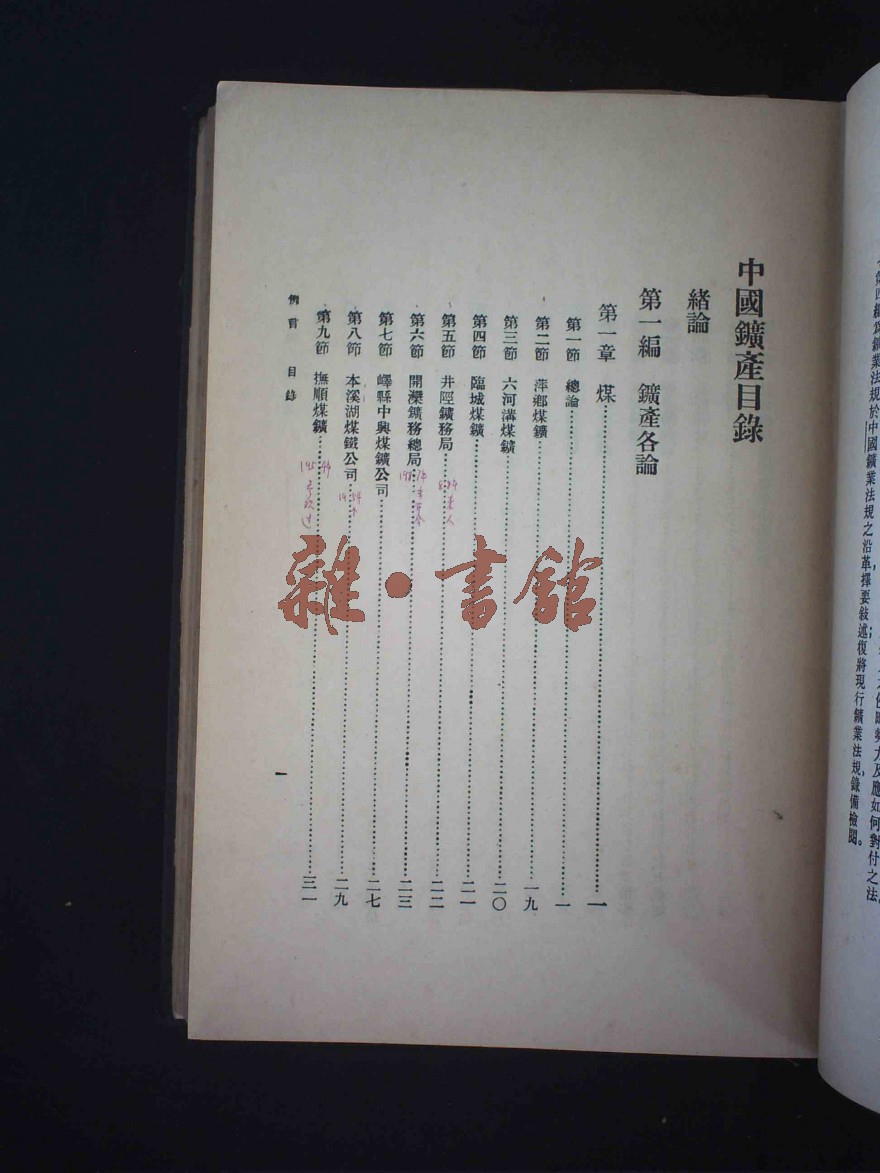 中國鑛產目錄
緒論
第一編 鑛產各論
第一章 煤……一
第一節 總論……一
第二節 萍鄉煤鑛……一九
第三節 六河溝煤鑛……二〇
第四節 臨城煤鑛……二一
第五節 井陘鑛務局……二二
第六節 開灤鑛務總局……二三
第七節 嶧縣中興煤鑛公司……二七
第八節 本溪湖煤鐵公司……二九
第九節 撫順煤鑛……三一
例言 目錄
一
雜·書館
鑛業法規於中國鑛業法規之沿革擇要敍述復將現行鑛業法規錄備檢閱。
勢力及應如何對付之法